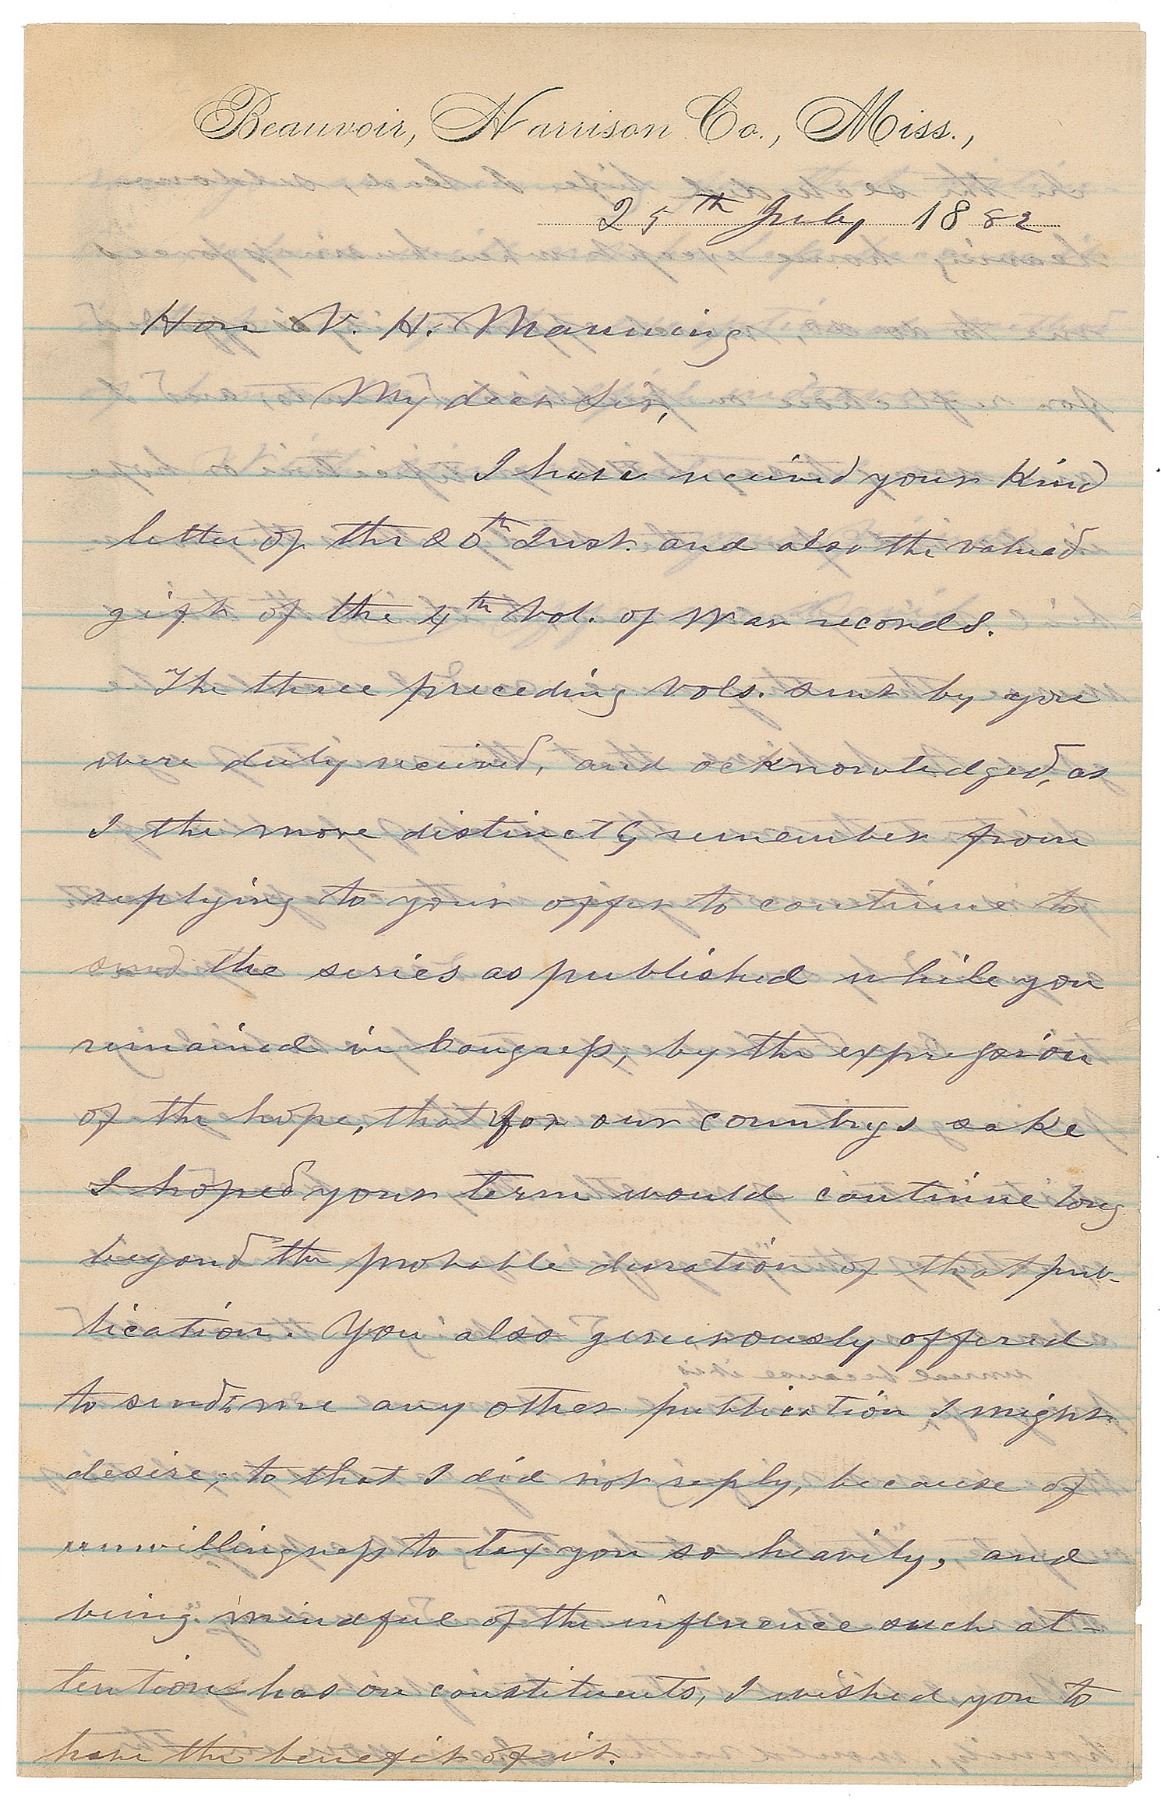 Beauvoir, Harrison Co., Miss.,
25th July 1882
Hon V. H. Manning
My dear Sir,
I have received your kind
letter of the 20th Inst. and also the valued
gift of the 4th Vol. of War records.
The three preceding Vols. sent by you
were duly received, and acknowledged, as
I the more distinctly remember from
replying to your offer to continue to
send the series as published while you
remained in Congress, by the expression
of the hope, that for our countrys sake
I hoped your term would continue long
beyond the probable duration of that pub-
lication. You also generously offered
to send me any other publication I might
desire, to that I did not reply, because of
unwillingness to tax you so heavily, and
being mindful of the influence such at-
tentions has on constituents, I wished you to
have the benefit of it.